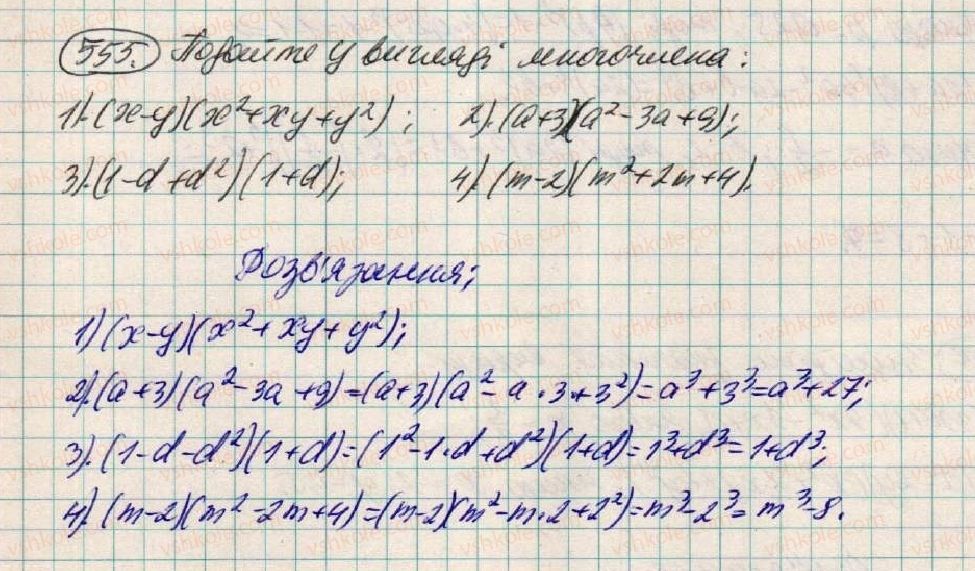 555. Подайте у вигляді многочлена:
1). (x-y)(x²+xy+y²); 2). (a+3)(a²-3a+9);
3). (1-d+d²)(1+d); 4). (m-2)(m²+2m+4).
Розв'язання;
1) (x-y)(x²+xy+y²);
2). (a+3)(a²-3a+9)=(a+3)(a²-a·3+3²)=a³+3³=a³+27;
3). (1-d-d²)(1+d)=(1²-1·d+d²)(1+d)=1³+d³=1+d³;
4). (m-2)(m²-2m+4)=(m-2)(m²-m·2+2²)=m³-2³=m³-8.